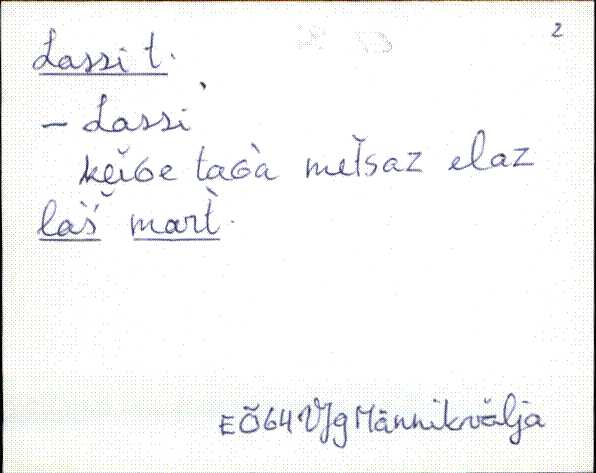 2
Lassi t.
– Lassi`
kĕiбe taбà metsaz elaz
laš mart̀.
EÕ64 VJg Männikvälja